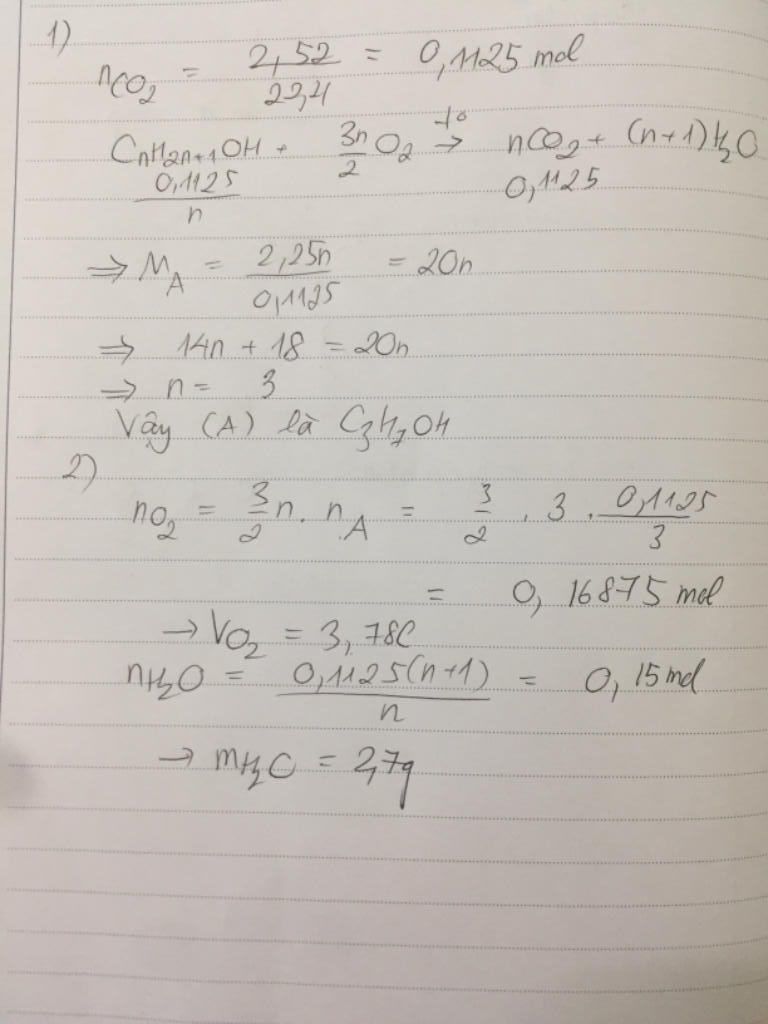 1)
nCO₂ = 2,52/22,4 = 0,1125 mol
CnH2n+1OH + 3n/2 O₂ →t° nCO₂ + (n+1)H₂O
0,1125/n 0,1125
⇒ M_A = 2,25n/0,1125 = 20n
⇒ 14n + 18 = 20n
⇒ n = 3
Vậy (A) là C₃H₇OH
2)
nO₂ = 3/2 n . n_A = 3/2 . 3 . 0,1125/3
= 0,16875 mol
→ VO₂ = 3,78l
nH₂O = 0,1125(n+1)/n = 0,15 mol
→ mH₂O = 2,7g